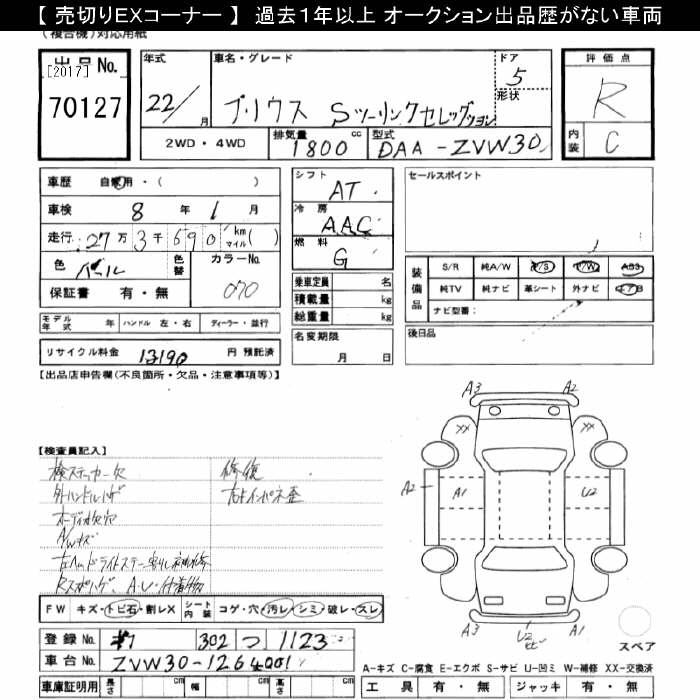 【 売切りEXコーナー 】 過去1年以上 オークション出品歴がない車両
(複合機)対応用紙
出品No.
[2017]
70127
年式
22/
月
車名・グレード
プリウス Sツーリングセレクション
ドア
5
形状
評価点
R
内装
C
2WD・4WD
排気量
1800
cc
型式
DAA-ZVW30
車歴 自家用・( )
車検 8 年 1 月
走行 27万3千690 km マイル( )
色 パール
色替
カラーNo.
070
保証書 有・無
シフト
AT
冷房
AAC
燃料
G
乗車定員 名
積載量 kg
総重量 kg
セールスポイント
装備品
S/R 純A/W P/S P/W ABS
純TV 純ナビ 革シート 外ナビ エアB
ナビ型番:
モデル年式 年 ハンドル 左・右 ディーラー・並行
名変期限
月 日
後日品
リサイクル料金 13190 円 預託済
【出品店申告欄(不良箇所・欠品・注意事項等)】
【検査員記入】
検ステッカー欠
修復
外ハンドルハゲ
右インパネ歪
オーディオ欠穴
A/Wキズ
A3
A2
XX
XX
A2
A1
U2
A3
U2
A1
スペア
FW キズ・トビ石・割レX
シート内装 コゲ・穴・汚レ・シミ・破レ・スレ
登録No. 302 つ 1123
車台No. ZVW30-1264001
車庫証明用 長さ cm 幅 cm 高さ cm
A-キズ C-腐食 E-エクボ S-サビ U-凹ミ W-補修 XX-交換済
工具 有・無 ジャッキ 有・無